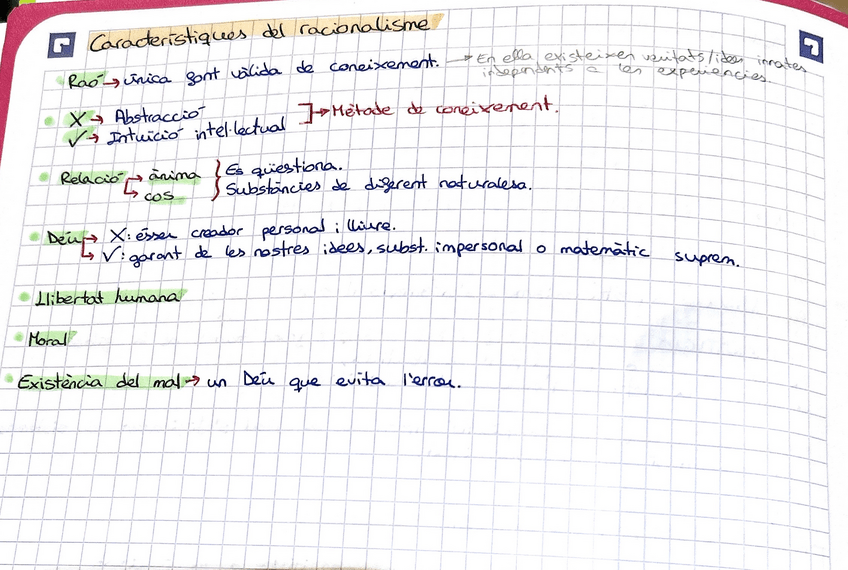 Característiques del racionalisme
Raó → única font vàlida de coneixement. → En ella existeixen veritats/idees innates
independents a les experiències.
X → Abstracció
✓ → Intuïció intel·lectual ] → Mètode de coneixement.
Relació → ànima } Es qüestiona.
↳ cos } Substàncies de diferent naturalesa.
Déu → X: ésser creador personal i lliure.
↳ ✓: garant de les nostres idees, subst. impersonal o matemàtic suprem.
Llibertat humana
Moral
Existència del mal → un Déu que evita l'error.